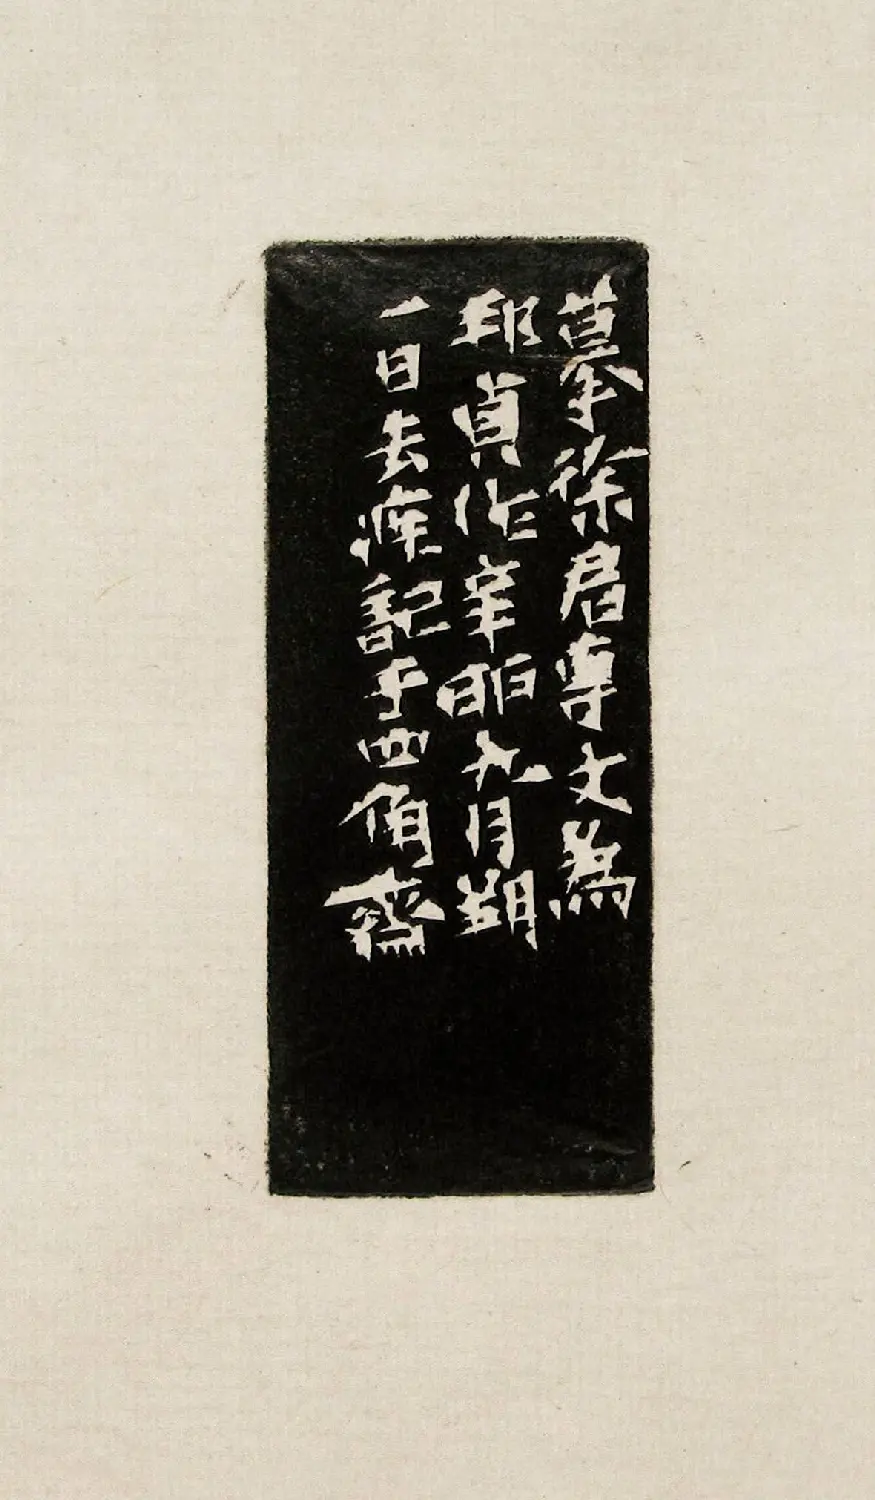 摹徐君專文為
邦貞作辛卯九月朔
一日去疾記于四角齋